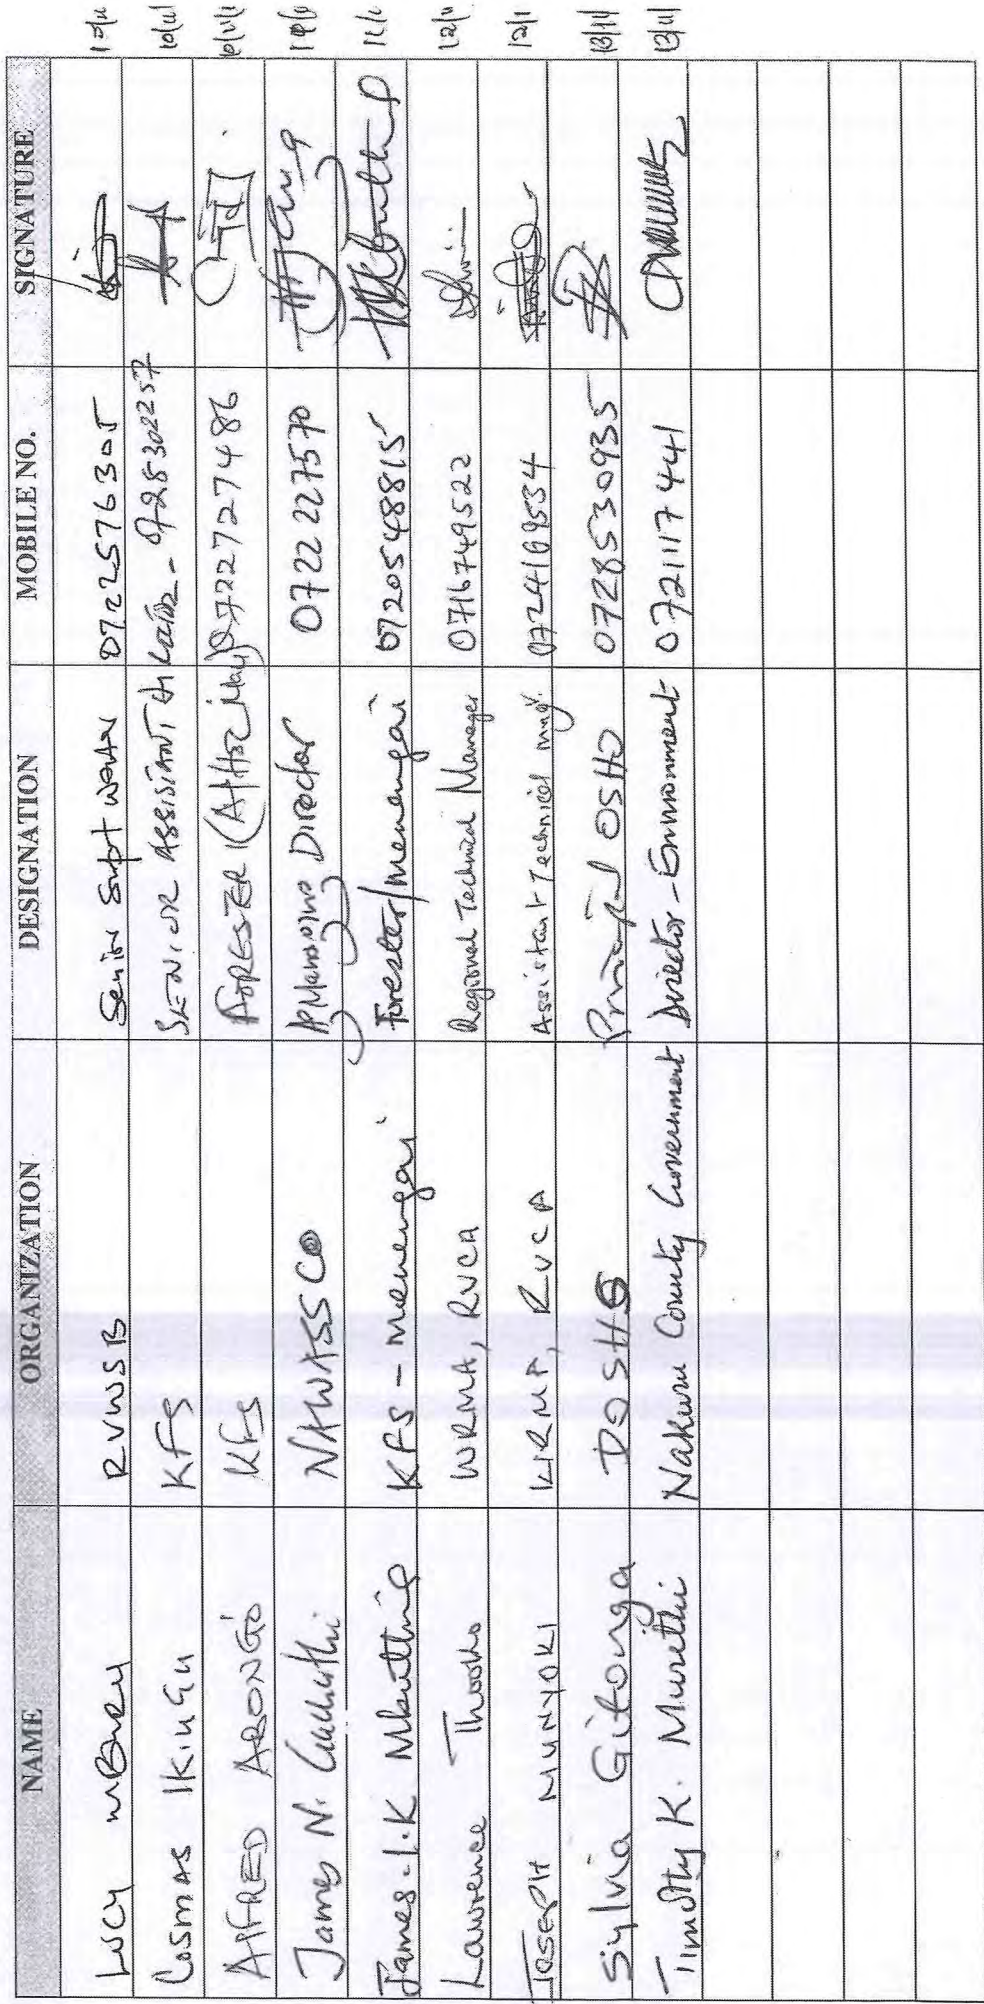 NAME ORGANIZATION DESIGNATION MOBILE NO. SIGNATURE
LUCY MBURU RVWSB Senior Supt 0722576305
COSMAS IKIUGU KFS SENIOR ASSISTANT - 0728302257
ALFRED ABONG'O KFS FORESTER 1 0722727486
James N. Gachathi NAWASSCO Ag Managing Director 0722227570
James I.K KFS - Menengai Forester/Menengai 0720548815
Lawrence Thooko WRMA, RVCA Regional Technical Manager 0716749522 12/11
JOSEPH MUNYOKI WRMA, RVCA Assistant Technical mngr. 0724169534
Sylvia Gitonga DOSHS Principal OSHO 0728530935 13/11
Timothy K. Murethi Nakuru County Government Director - Environment 0721117441 13/11